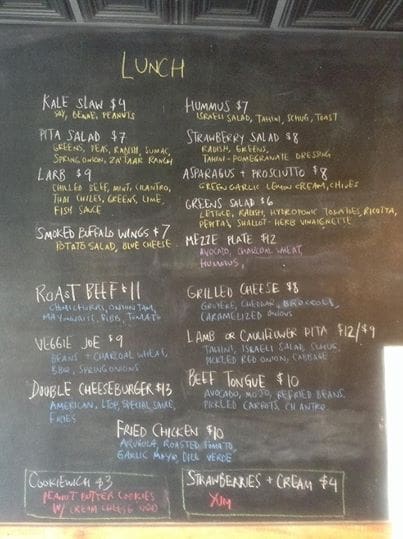 LUNCH
KALE SLAW $4
SOY, BENNE, PEANUTS
PITA SALAD $7
GREENS, PEAS, RADISH, SUMAC,
SPRING ONION, ZA'TAAR RANCH
LARB $9
CHILLED BEEF, MINT, CILANTRO,
THAI CHILES, GREENS, LIME,
FISH SAUCE
SMOKED BUFFALO WINGS $7
POTATO SALAD, BLUE CHEESE
HUMMUS $7
ISRAELI SALAD, TAHINI, SCHUG, TOAST
STRAWBERRY SALAD $8
RADISH, GREENS,
TAHINI-POMEGRANATE DRESSING
ASPARAGUS + PROSCIUTTO $8
GREEN GARLIC LEMON CREAM, CHIVES
GREENS SALAD $6
LETTUCE, RADISH, HYDROPONIC TOMATOES, RICOTTA,
PEPITAS, SHALLOT-HERB VINAIGRETTE
MEZZE PLATE $12
AVOCADO, CHARCOAL WHEAT,
HUMMUS,
ROAST BEEF $11
CHIMICHURRI, ONION JAM,
MAYONNAISE, BIBB, TOMATO
VEGGIE JOE $9
BEANS + CHARCOAL WHEAT,
BBQ, SPRING ONIONS
DOUBLE CHEESEBURGER $13
AMERICAN, LTOP, SPECIAL SAUCE,
FRIES
GRILLED CHEESE $8
GRUYERE, CHEDDAR, BROCCOLI,
CARAMELIZED ONIONS
LAMB OR CAULIFLOWER PITA $12/$9
TAHINI, ISRAELI SALAD, SCHUG,
PICKLED RED ONION, CABBAGE
BEEF TONGUE $10
AVOCADO, MOJO, REFRIED BEANS,
PICKLED CARROTS, CILANTRO
FRIED CHICKEN $10
ARUGULA, ROASTED TOMATO,
GARLIC MAYO, DILL VERDE
COOKIEWICH $3
PEANUT BUTTER COOKIES
W/ CREAM CHEESE
STRAWBERRIES + CREAM $4
YUM